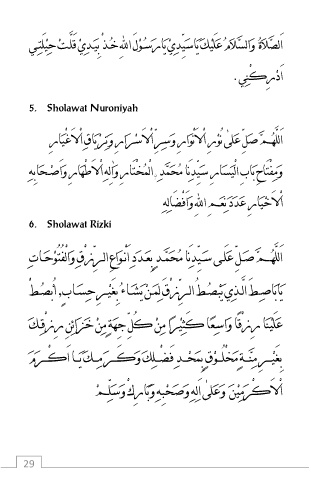 اَلصَّلَاةُ وَالسَّلَامُ عَلَيْكَ يَاسَيِّدِيْ يَارَسُوْلَ اللهِ خُذْ بِيَدِيْ قَلَّتْ حِيْلَتِيْ
اَدْرِكْنِيْ.
5. Sholawat Nuroniyah
اَللَّهُمَّ صَلِّ عَلَى نُوْرِ الْأَنْوَارِ وَسِرِّ الْأَسْرَارِ وَتِرْيَاقِ الْأَغْيَارِ
وَمِفْتَاحِ بَابِ الْيَسَارِ سَيِّدِنَا مُحَمَّدٍ الْمُخْتَارِ وَاٰلِهِ الْأَطْهَارِ وَاَصْحَابِهِ
الْأَخْيَارِ عَدَدَ نِعَمِ اللهِ وَاَفْضَالِهِ
6. Sholawat Rizki
اَللَّهُمَّ صَلِّ عَلَى سَيِّدِنَا مُحَمَّدٍ بِعَدَدِ اَنْوَاعِ الرِّزْقِ وَالْفُتُوْحَاتِ
يَابَاصِطُ الَّذِيْ يَبْصُطُ الرِّزْقَ لِمَنْ يَشَاءُ بِغَيْرِ حِسَابٍ، اُبْصُطْ
عَلَيْنَا رِزْقًا وَاسِعًا كَثِيْرًا مِنْ كُلِّ جِهَةٍ مِنْ خَزَائِنِ رِزْقِكَ
بِغَيْرِ مِنَّةِ مَخْلُوْقٍ بِمَحْدِ فَضْلِكَ وَكَرَمِكَ يَا اَكْرَمَ
الْأَكْرَمِيْنَ وَعَلَى اٰلِهِ وَصَحْبِهِ وَبَارِكْ وَسَلِّمْ
29